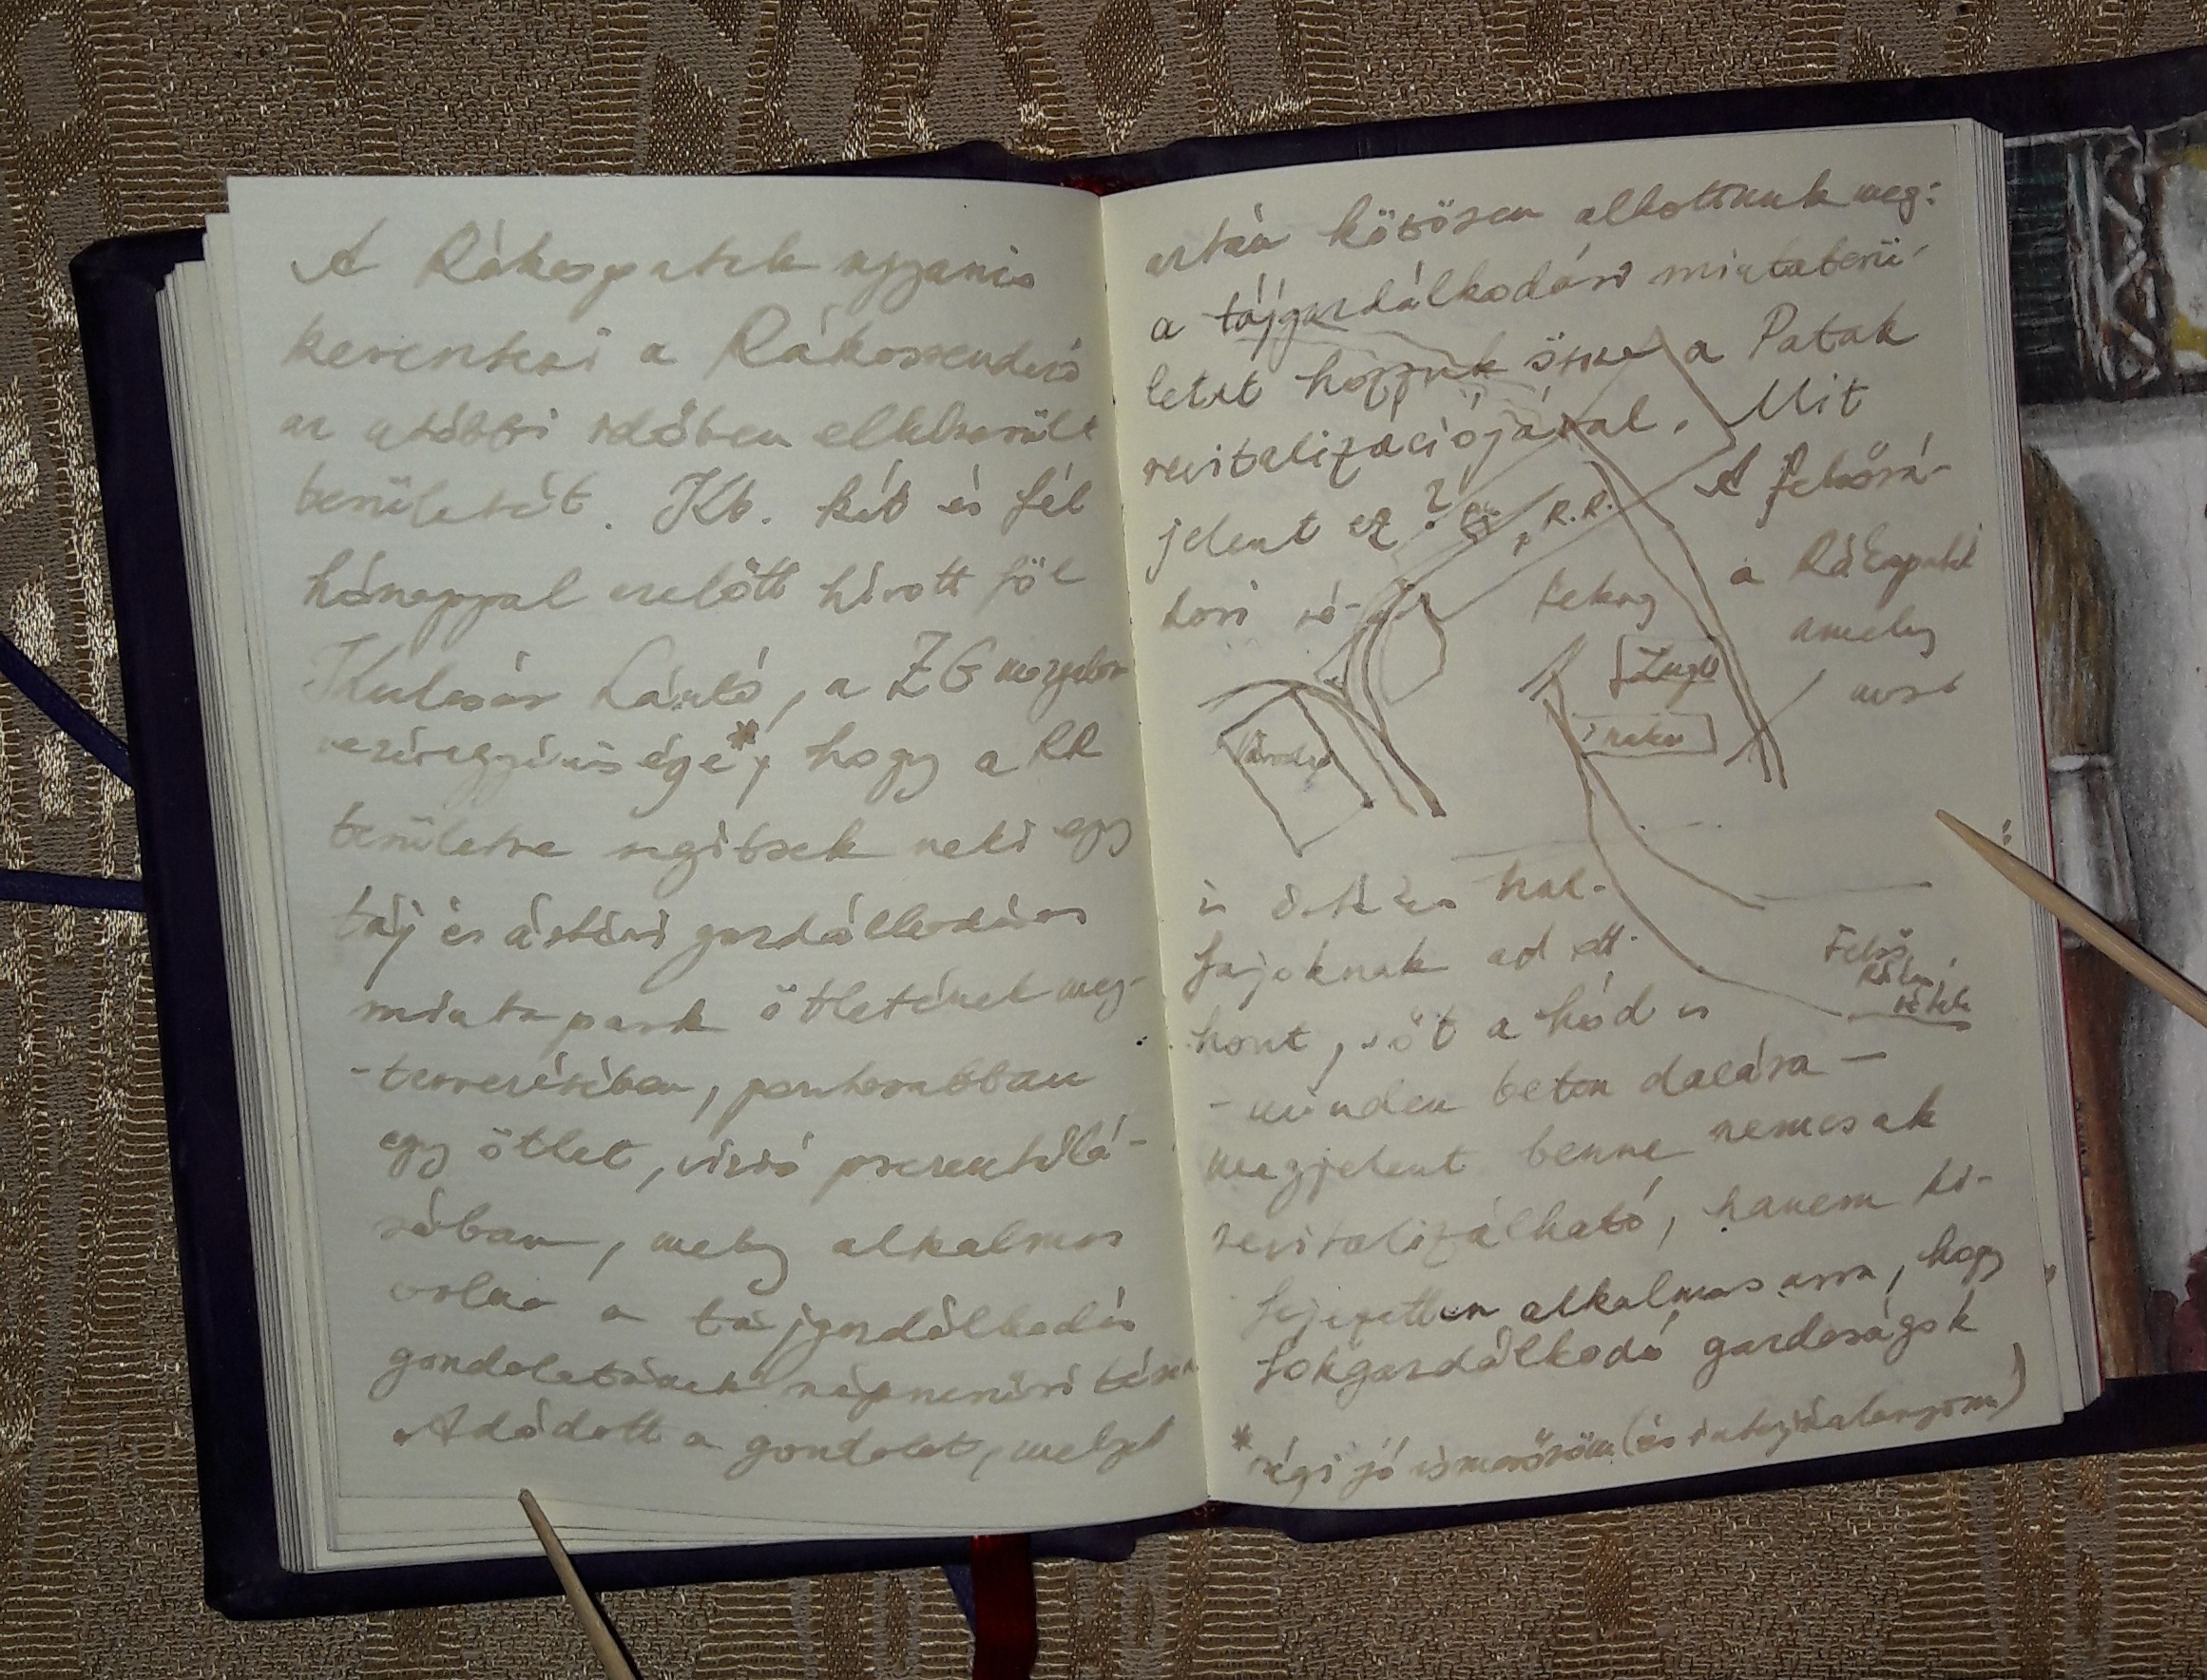 A Rákospatak ugyanis
keresztezi a Rákosrendező
az utóbbi időben elhíresült
területét. Kb. két és fél
hónappal ezelőtt hívott föl
Kulcsár László, a ZG mozgalom
vezéregyénisége*, hogy a RR
területre segítsek neki egy
táj és ártéri gazdálkodásos
mintapark ötletének meg-
-tervezésében, pontosabban
egy ötlet, vízió prezentálá-
sában, mely alkalmas
volna a tájgazdálkodás
gondolatának népszerűsítésére
Adódott a gondolat, melyet
aztán közösen alkottunk meg:
a tájgazdálkodási mintaterü-
letet hozzuk össze a Patak
revitalizációjával. Mit
jelent ez? A felsőrá-
R.R.
kosi ré- a Rákospatak
amely
most
Városliget
Zugló
Felső
Rákosi
rétek
is őshas hal-
fajoknak ad ott-
hont, sőt a hód is
- minden beton dacára -
megjelent benne nemcsak
revitalizálható, hanem ki-
fejezetten alkalmas arra, hogy
fokgazdálkodó gazdaságok
* régi jó ismerősöm (és